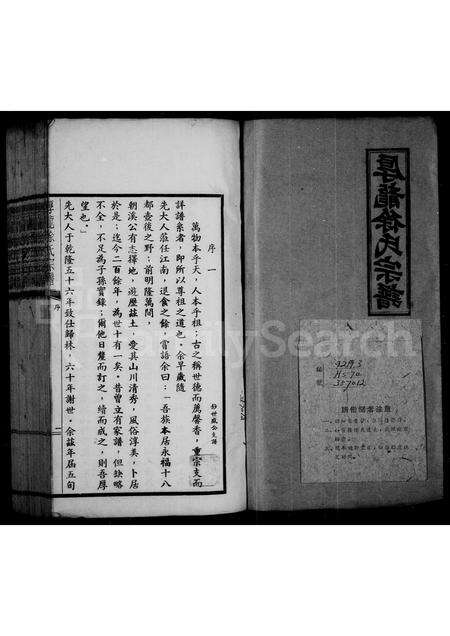 厚龍徐氏宗譜
929.3
序一
妙世威公支譜
萬物本乎天，人本乎祖；古之稱世德而薦馨香，重宗支而
詳譜系者，即所以尊祖之道也。余早歲隨
先大人蒞任江南，退食之餘，嘗語余曰：「吾族本居永福十八
都壺後之野；前明隆萬間，
朝溪公有志擇地，遊歷茲土，愛其山川清秀，風俗淳美，卜居
於是；迄今二百餘年，為世十有一矣。昔曾立有家譜，但缺略
不全，不足為子孫實錄；爾他日釐而訂之，續而成之，則吾厚
望也。」
先大人于乾隆五十六年致仕歸林，六十年謝世。余茲年屆五旬
厚龍徐氏宗譜
序
FamilySearch